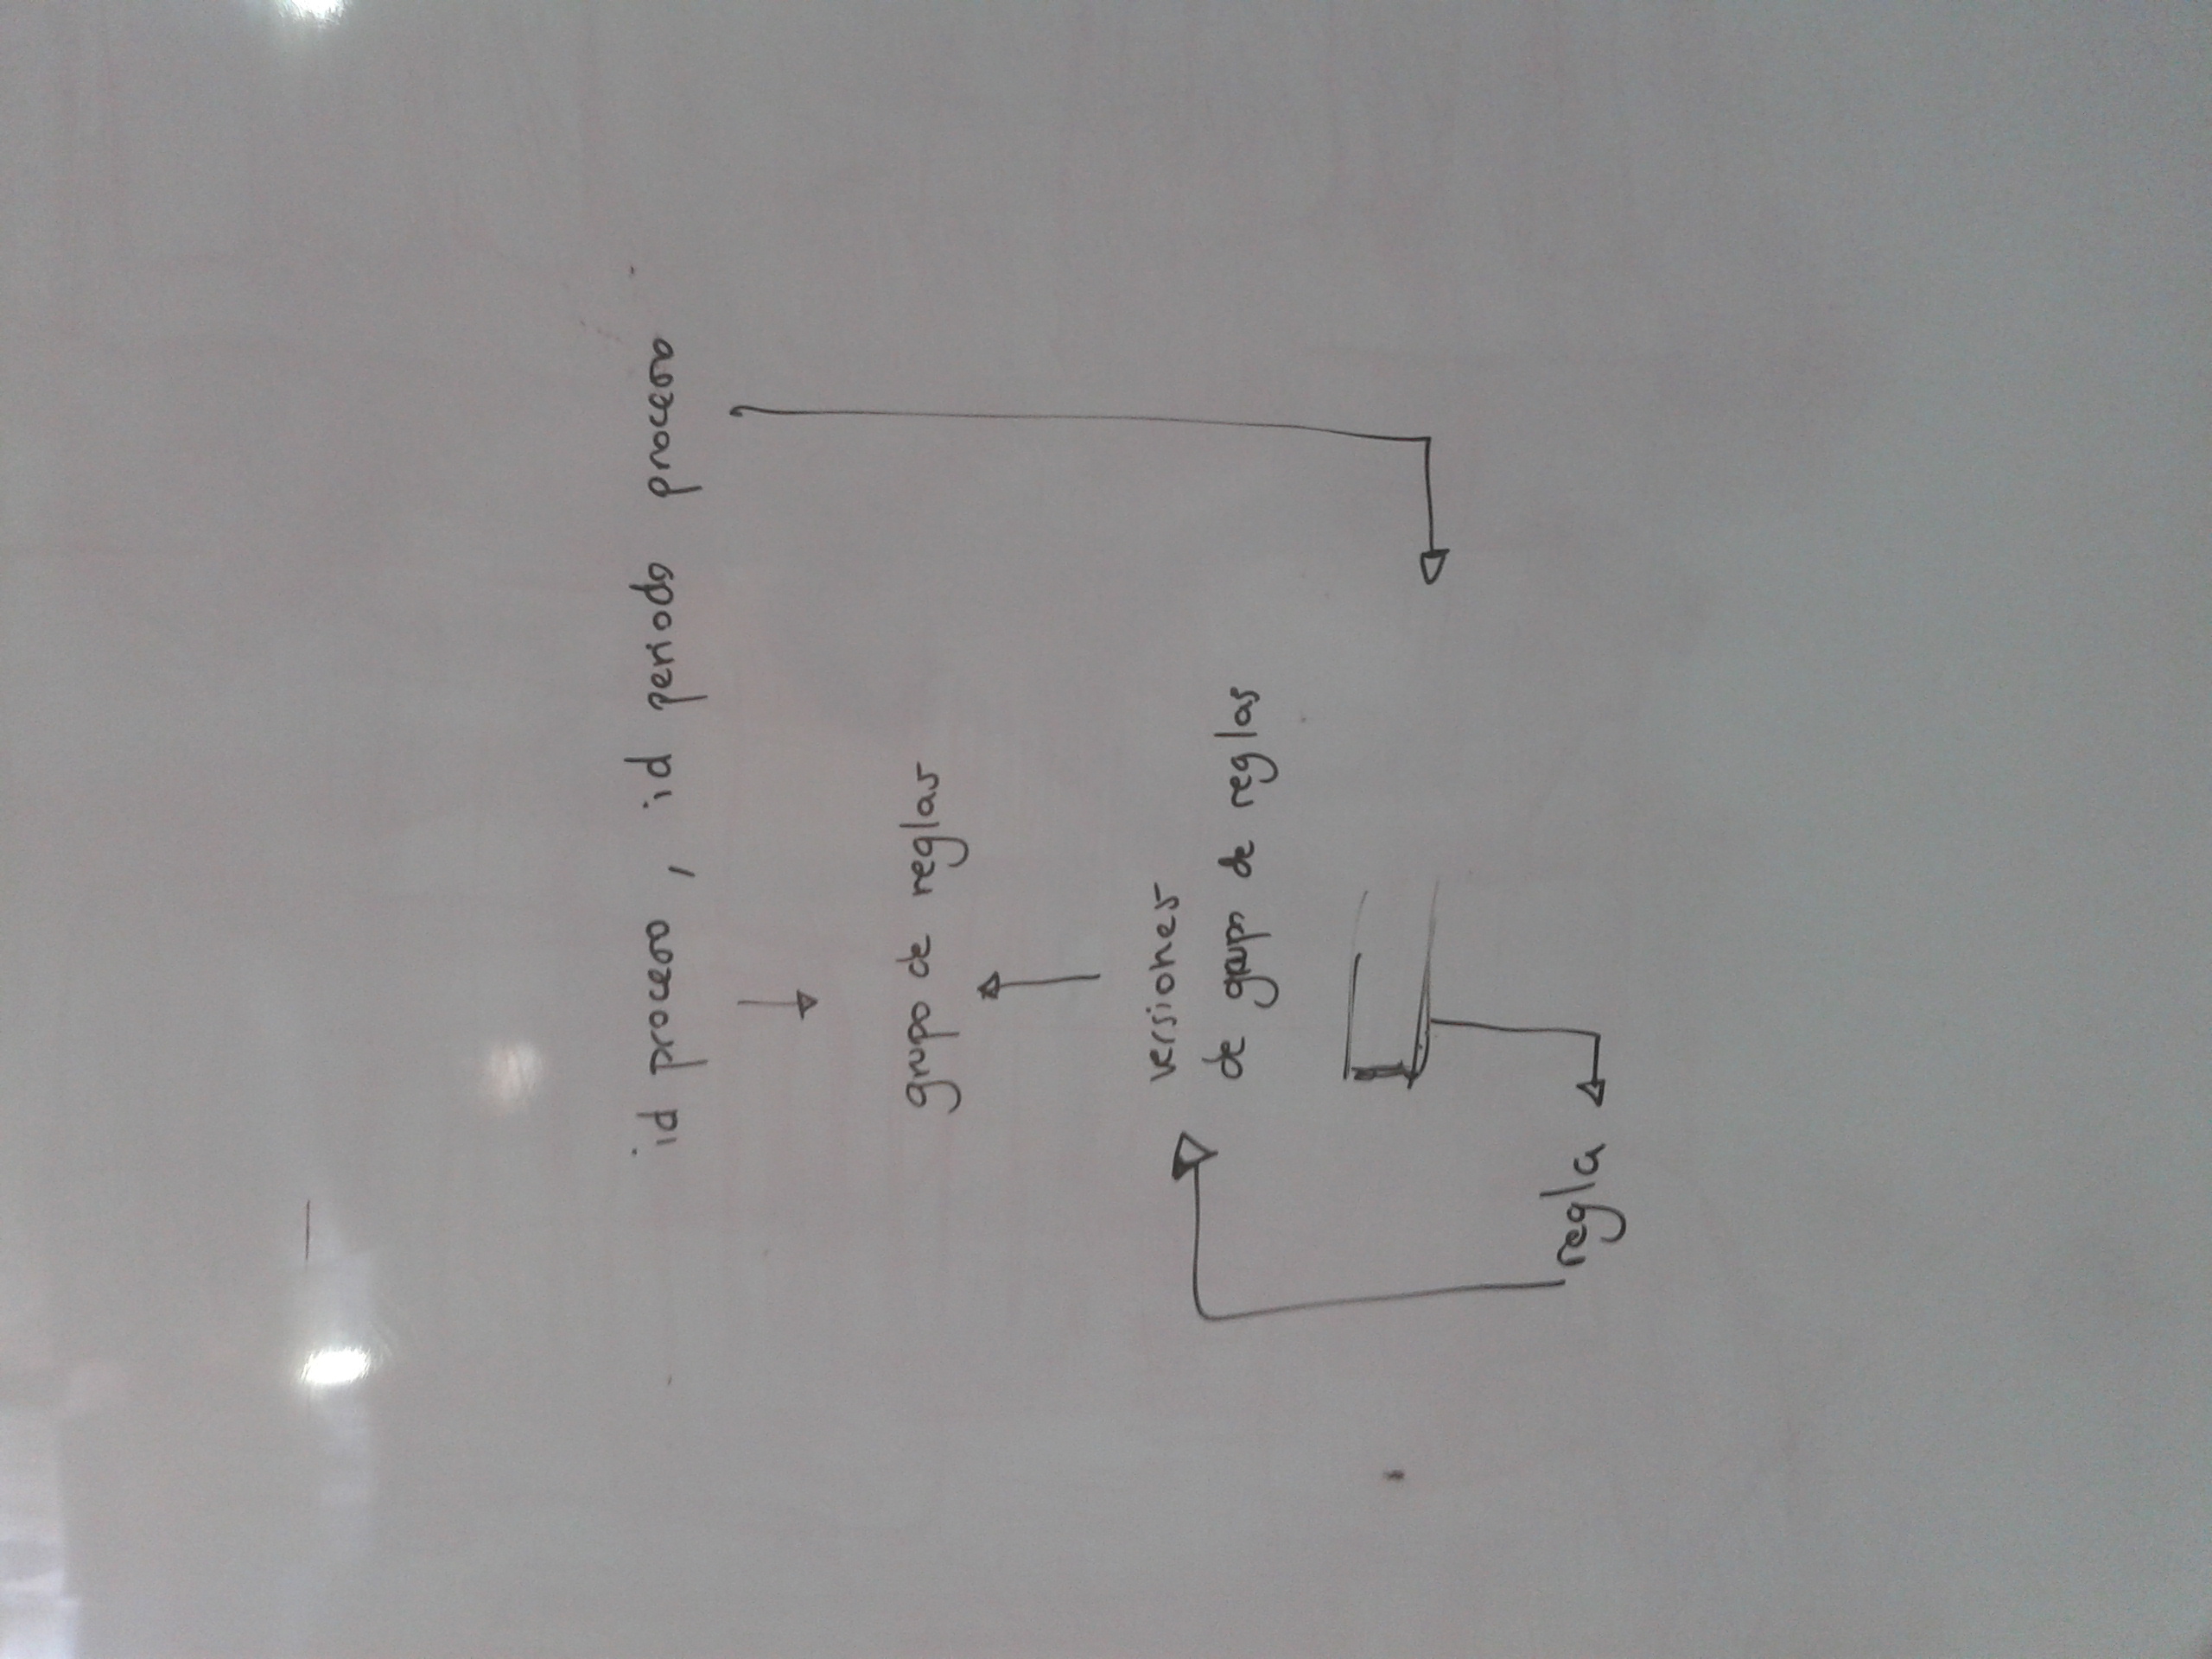 id proceso, id periodo proceso
grupo de reglas
versiones
de grupo de reglas
regla